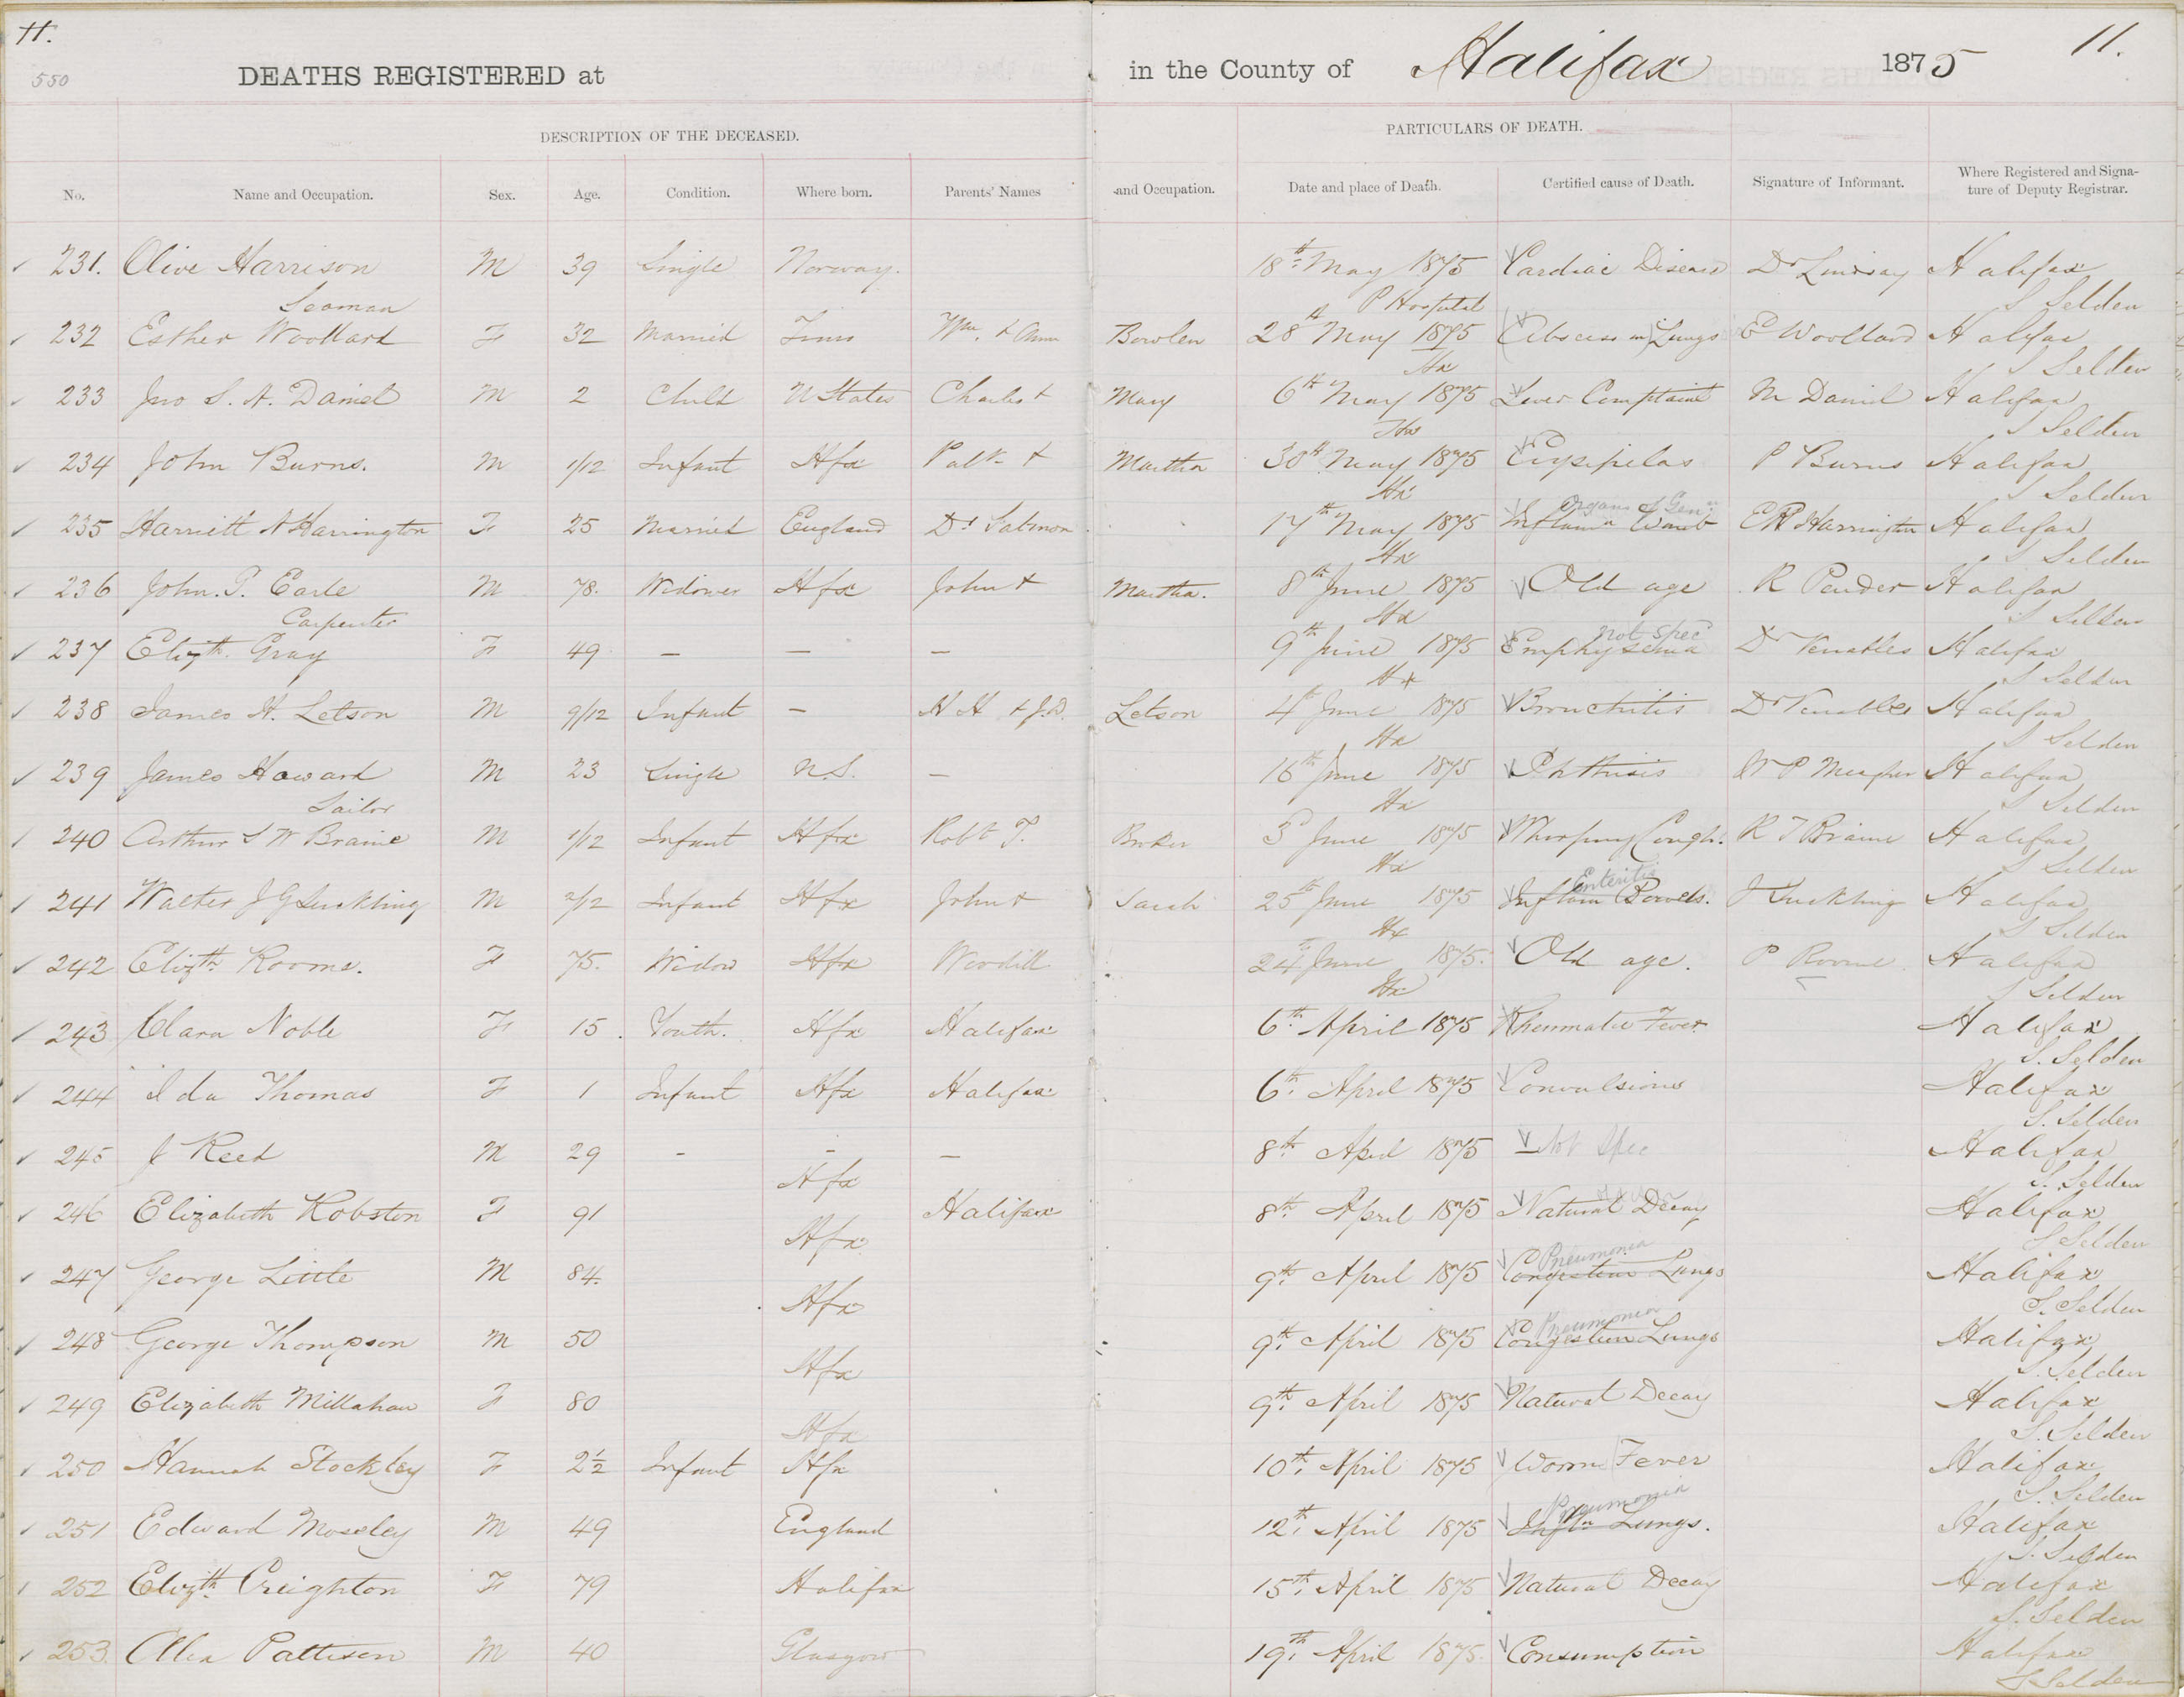 11.
11.
550
DEATHS REGISTERED at
in the County of Halifax 1875
DESCRIPTION OF THE DECEASED.
PARTICULARS OF DEATH.
No. Name and Occupation. Sex. Age. Condition. Where born. Parents' Names and Occupation. Date and place of Death. Certified cause of Death. Signature of Informant. Where Registered and Signa-
ture of Deputy Registrar.
231. Olive Harrison M 39 Single Norway. 18th May 1875 Cardiac Disease Dr Lindsay Halifax
Seaman P Hospital S Selden
232 Esther Woollard F 32 Married Wm. & Ann Bowlen 28th May 1875 Abscess in Lungs E Woollard Halifax
Hx S Selden
233 Jno S. A. Daniel M 2 Child U States Charles & Mary 6th May 1875 Liver Complaint M Daniel Halifax
Hx S Selden
234 John Burns. M 1/12 Infant Hfx Patk & Martha 30th May 1875 Erysipelas P Burns Halifax
Hx S Selden
Organs of Gen
235 Harriett N Harrington F 25 Married England Dr Salmon 17th May 1875 Inflamn Womb E R Harrington Halifax
Hx S Selden
236 John. P. Earle M 78. Widower Hfx John & Martha. 8th June 1875 Old age R Pender Halifax
Carpenter Hx S Selden
not spec
237 Elizth Gray F 49 — — — 9th June 1875 Emphysema Dr Venables Halifax
Hx S Selden
238 James H. Letson M 9/12 Infant — H H & J.D. Letson 4th June 1875 Bronchitis Dr Venables Halifax
Hx S Selden
239 James Howard M 23 Single N.S. — 16th June 1875 Phthisis W P Meagher Halifax
Sailor Hx S Selden
240 Arthur S W Braine M 1/12 Infant Hfx Robt T. Broker 3d June 1875 Whooping Cough. R T Braine Halifax
Hx S Selden
Enteritis
241 Walter J G Suckling M 2/12 Infant Hfx John & Sarah 25th June 1875 Inflam Bowels. J Suckling Halifax
Hx S Selden
242 Elizth Roome. F 75. Widow Hfx Woodill 24th June 1875. Old age. P Roome Halifax
Hx S Selden
243 Clara Noble F 15. Youth. Hfx Halifax 6th. April 1875 Rheumatic Fever Halifax
S. Selden
244 Ida Thomas F 1 Infant Hfx Halifax 6th. April 1875 Convulsions Halifax
S. Selden
245 J Reed M 29 - - — 8th April 1875 — Not Spec Halifax
Hfx S. Selden
246 Elizabeth Robston F 91 Halifax 8th. April 1875 Natural Decay Halifax
Hfx S Selden
Pneumonia
247 George Little M 84. 9th. April 1875 Congestion Lungs Halifax
Hfx S. Selden
Pneumonia
248 George Thompson M 50 9th. April 1875 Congestion Lungs Halifax
Hfx S. Selden
249 Elizabeth Millahan F 80 9th. April 1875 Natural Decay Halifax
Hfx S. Selden
250 Hannah Stockley F 2½ Infant Hfx 10th. April 1875 Worm Fever Halifax
S. Selden
Pneumonia
251 Edward Moseley M 49 England 12th. April 1875 Infln Lungs. Halifax
S. Selden
252 Elizth Creighton F 79 Halifax 15th. April 1875 Natural Decay Halifax
S. Selden
253. Alex Pattison M 40 Glasgow 19th. April 1875. Consumption Halifax
S Selden